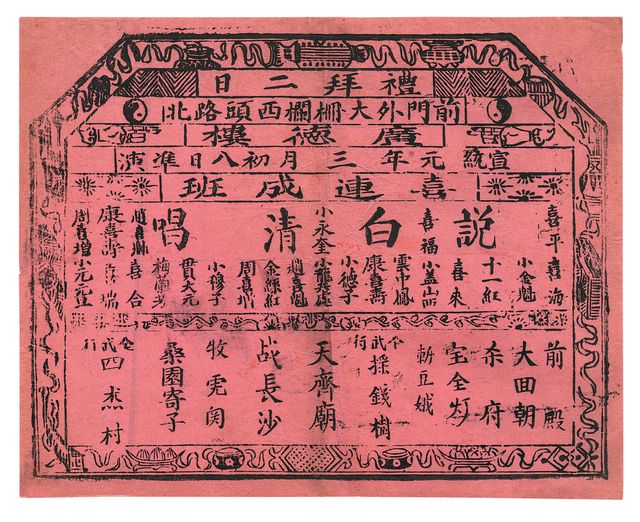 禮拜二日
前門外大柵欄西頭路北
廣德樓
宣統元年三月初八日准演
喜連成班
説白清唱
喜平喜海
小金魁
十一紅
喜來
喜福
雲中鳳
康喜壽
小穆子
小永奎
趙喜魁
金絲紅
周喜增
小穆子
貫大元
梅蘭芳
喜合
康喜壽喜瑞
周喜增
前殿
大回朝
府
宝全灯
斬豆娥
全武行
採錢樹
天齊廟
战長沙
牧虎関
桑園寄子
全武行
四杰村